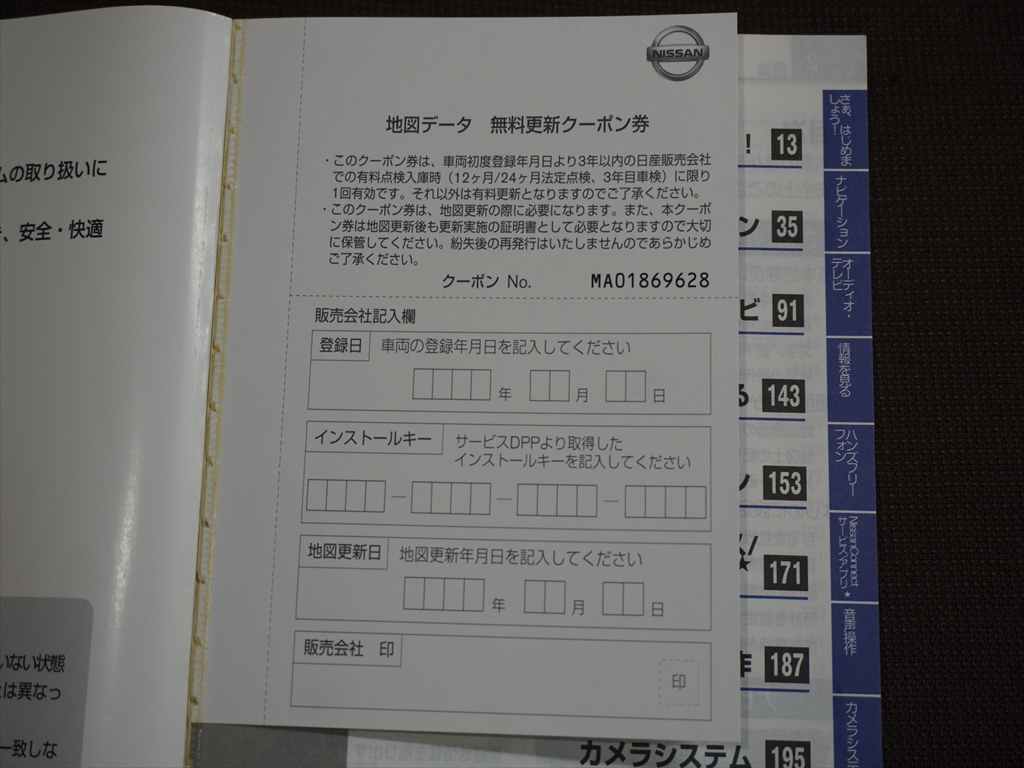 ムの取り扱いに
、安全・快適
いない状態
は異なっ
一致しな
NISSAN
地図データ 無料更新クーポン券
・このクーポン券は、車両初度登録年月日より3年以内の日産販売会社
での有料点検入庫時（12ヶ月/24ヶ月法定点検、3年目車検）に限り
1回有効です。それ以外は有料更新となりますのでご了承ください。
・このクーポン券は、地図更新の際に必要になります。また、本クーポ
ン券は地図更新後も更新実施の証明書として必要となりますので大切
に保管してください。紛失後の再発行はいたしませんのであらかじめ
ご了承ください。
クーポン No. MA01869628
販売会社記入欄
登録日 車両の登録年月日を記入してください
年 月 日
インストールキー サービスDPPより取得した
インストールキーを記入してください
地図更新日 地図更新年月日を記入してください
年 月 日
販売会社 印
印
! 13
ン 35
ビ 91
る 143
ン 153
★ 171
作 187
カメラシステム 195
さあ、はじめま
しょう!
ナビゲーション
オーディオ・
テレビ
情報を見る
ハンズフリー
フォン
NissanConnect
サービス/アプリ★
音声操作
カメラシステ